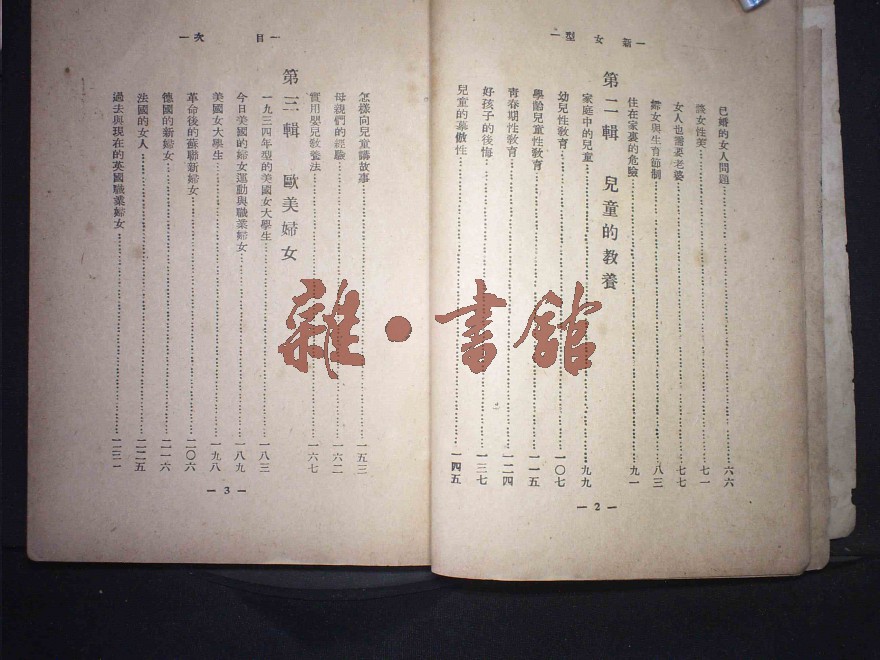 新女型
已婚的女人問題 六六
談女性美 七一
女人也需要老婆 七七
婦女與生育節制 八三
住在家裏的危險 九一
第二輯 兒童的教養
家庭中的兒童 九九
幼兒性教育 一〇七
學齡兒童性教育 一一五
靑春期性教育 一二四
好孩子的後悔 一三七
兒童的摹倣性 一四五
— 2 —
目次
怎樣向兒童講故事 一五三
母親們的經驗 一六二
實用嬰兒敎養法 一六七
第三輯 歐美婦女
一九三四年型的美國女大學生 一八三
今日美國的婦女運動與職業婦女 一八九
美國女大學生 一九八
革命後的蘇聯新婦女 二〇六
德國的新婦女 二一六
法國的女人 二二五
過去與現在的英國職業婦女 二三一
— 3 —
雜·書館